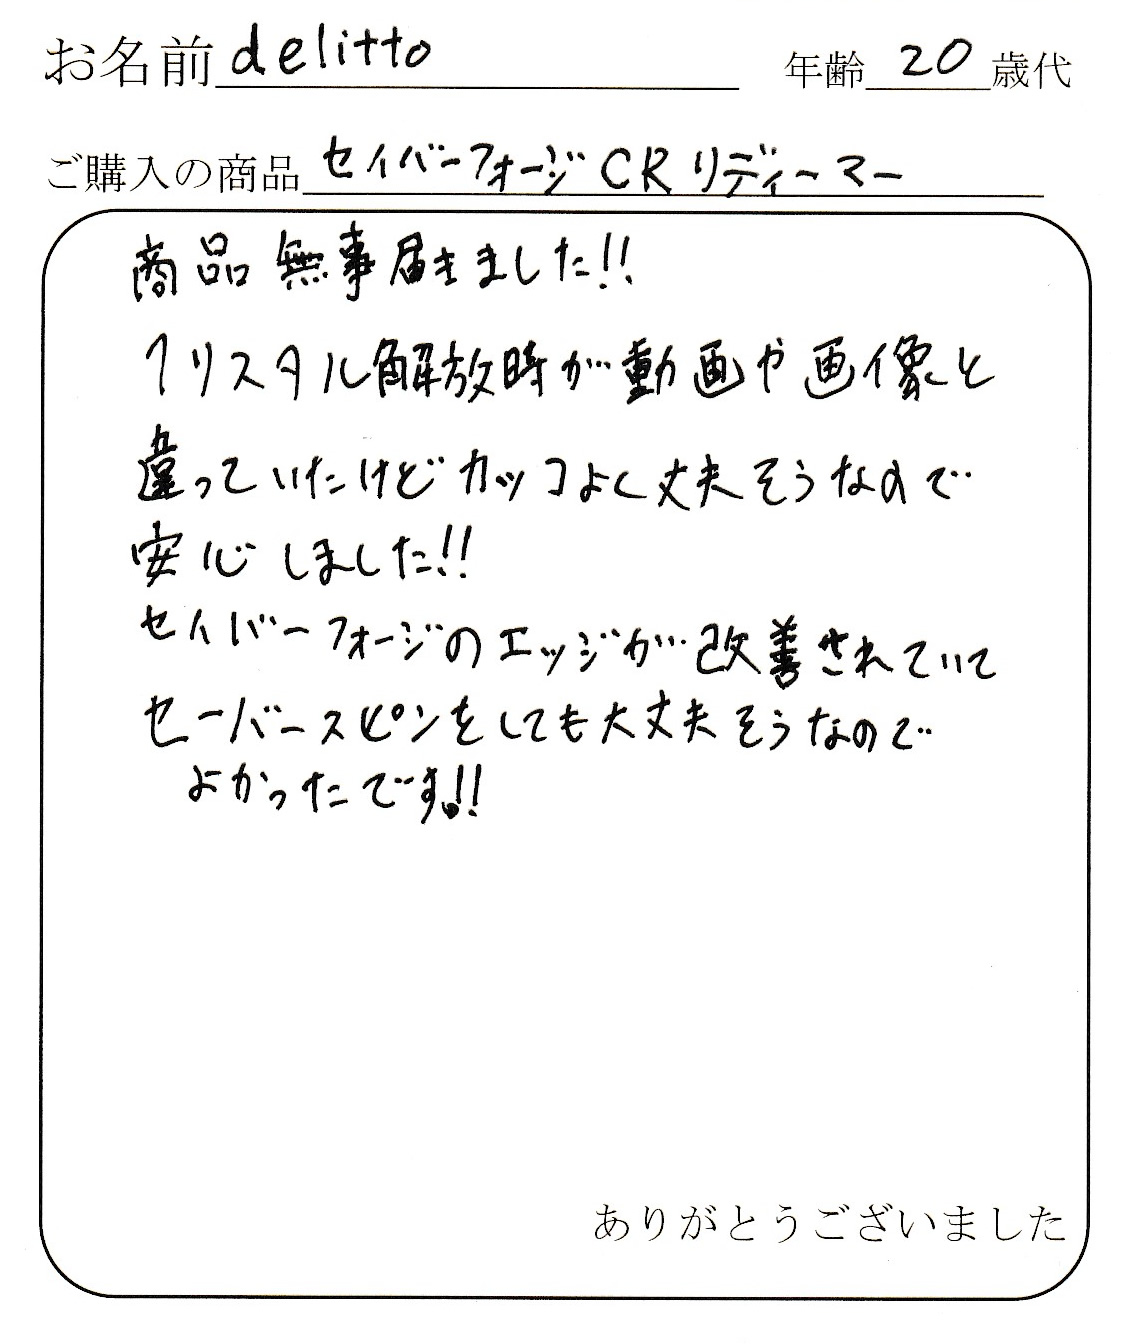 お名前 delitto 年齢 20 歳代
ご購入の商品 セイバーフォージ CR リディーマー
商品 無事届きました!!
クリスタル解放時が動画や画像と
違っていたけどカッコよく丈夫そうなので
安心しました!!
セイバーフォージのエッジが改善されていて
セーバースピンをしても大丈夫そうなので
よかったです!!
ありがとうございました